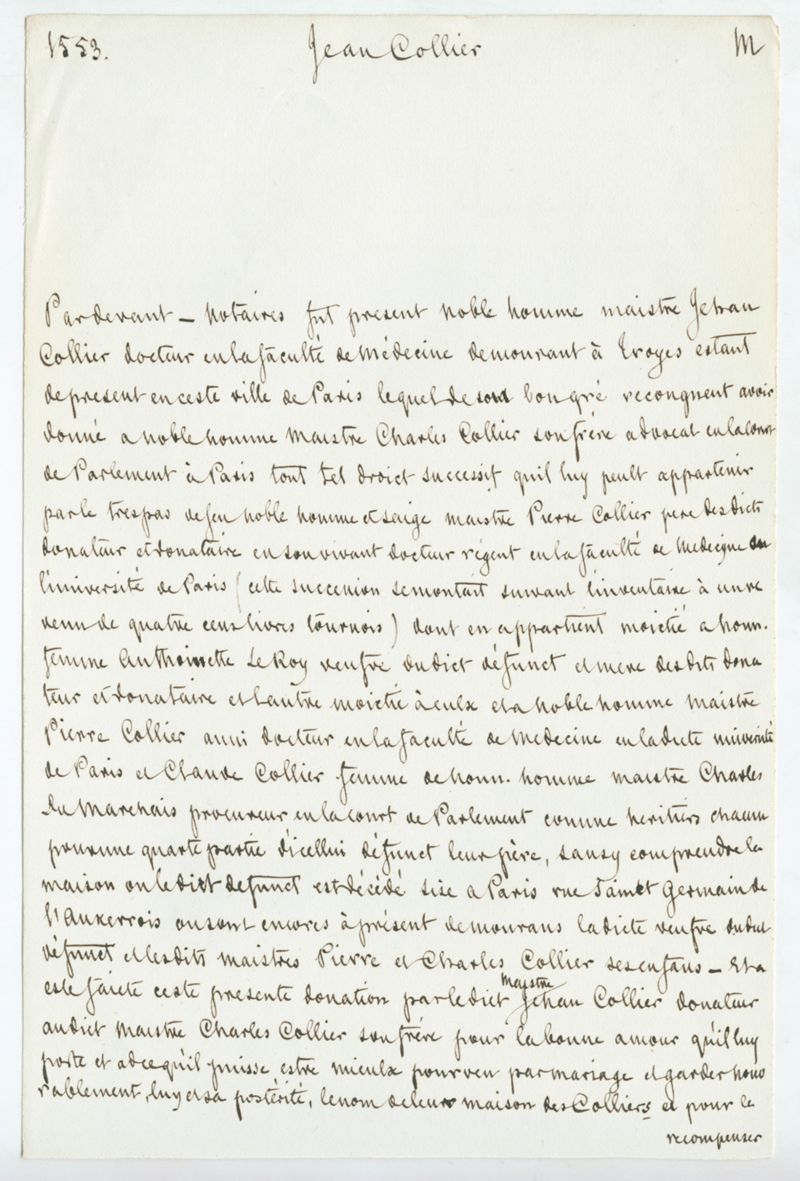 1553. Jean Collier M
Pardevant – Notaires fut present noble homme maistre Jehan
Collier docteur en la faculté de Médecine demourant à Troyes estant
de present en ceste ville de Paris lequel de son bon gré recongnent avoir
donné a noble homme Maistre Charles Collier son frère advocat en la court
de Parlement à Paris tout tel droict successif quil luy peult appartenir
par le trespas de feu noble homme et saige maistre Pierre Collier pere desdicts
donateur et donataire en son vivant docteur régent en la faculté de Medecine en
l'université de Paris (cette succession se montait suivant l'inventaire à un re
venu de quatre cens livres tournois) dont en appartient moictié a honn.
femme Anthoinette Le Roy veufve dudict défunct et mere desdits dona
teur et donataire et l'aultre moictié à eulx et a noble homme Maistre
Pierre Collier aussi docteur en la faculté de Medecine en ladicte université
de Paris et Claude Collier femme de honn. homme maistre Charles
du Marchais procureur en la court de Parlement comme heritiers chacun
pour une quarte partie d'icellui défunct leur père, sans y comprendre la
maison ou ledict defunct est décédé sise a Paris rue Sainct Germain de
l'Auxerrois ou sont encores à présent demourans ladicte veufve dudict
défunct et lesdits maistres Pierre et Charles Collier ses enfans – Et a
esté faicte ceste presente donation par ledict Maistre Jehan Collier donateur
audict Maistre Charles Collier son frère pour la bonne amour qu'il luy
porte et adce qu'il puisse estre mieulx pourveu par mariage et garder hono
rablement, luy et sa postérité, le nom de leur maison des Colliers et pour le
recompenser